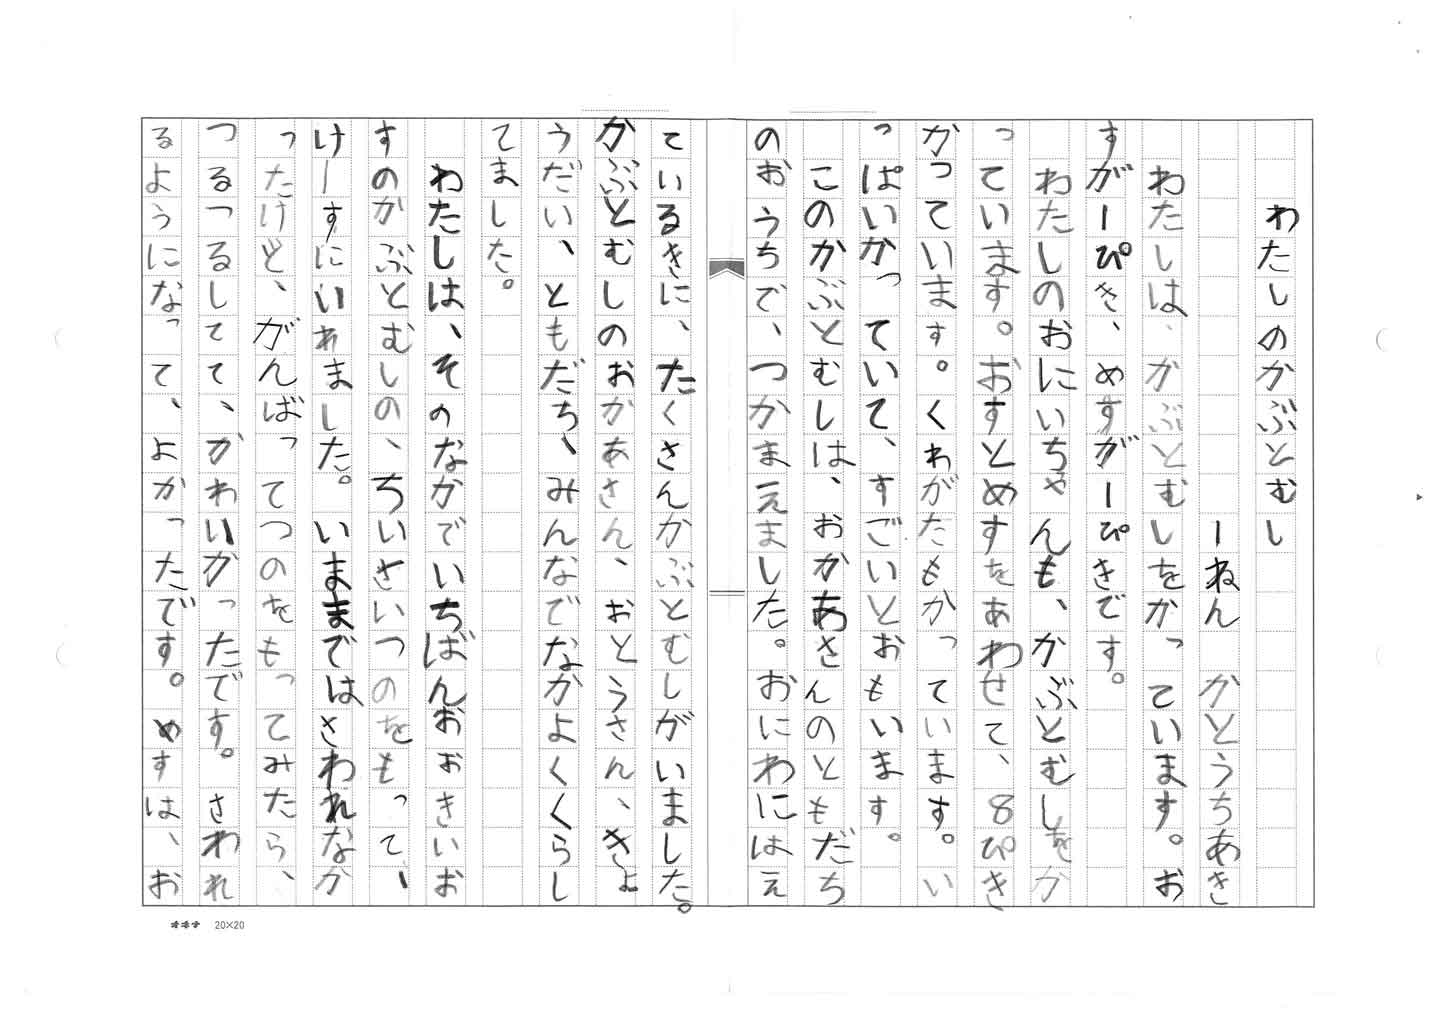 わたしのかぶとむし
一ねん　かとうちあき
わたしは、かぶとむしをかっています。お
すが一ぴき、めすが一ぴきです。
わたしのおにいちゃんも、かぶとむしをか
っています。おすとめすをあわせて、8ぴき
かっています。くわがたもかっています。い
っぱいかっていて、すごいとおもいます。
このかぶとむしは、おかあさんのともだち
のおうちで、つかまえました。おにわにはえ
ているきに、たくさんかぶとむしがいました。
かぶとむしのおかあさん、おとうさん、きょ
うだい、ともだち、みんなでなかよくくらし
てました。
わたしは、そのなかでいちばんおおきいお
すのかぶとむしの、ちいさいつのをもって、
けーすにいれました。いままではさわれなか
ったけど、がんばってつのをもってみたら、
つるつるしてて、かわいかったです。さわれ
るようになって、よかったです。めすは、お
オキナ 20×20